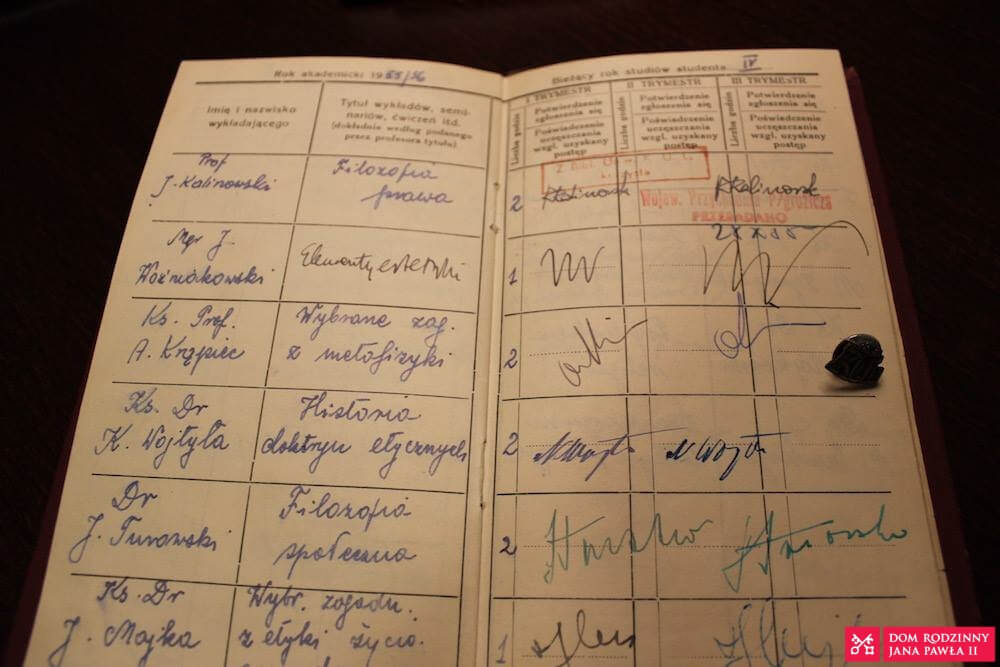 Rok akademicki 1955/56
Bieżący rok studiów studenta IV
Imię i nazwisko
wykładającego
Tytuł wykładów, semi-
nariów, ćwiczeń itd.
(dokładnie według podanego
przez profesora tytułu)
I TRYMESTR
Liczba godzin
Potwierdzenie
zgłoszenia się
Poświadczenie
uczęszczania
wzgl. uzyskany
postęp
II TRYMESTR
Liczba godzin
Potwierdzenie
zgłoszenia się
Poświadczenie
uczęszczania
wzgl. uzyskany
postęp
III TRYMESTR
Liczba godzin
Potwierdzenie
zgłoszenia się
Poświadczenie
uczęszczania
wzgl. uzyskany
postęp
Prof
J. Kalinowski
Filozofia
prawa
2
Wojew. Przychodnia P/gruźlicza
PRZEBADANO
Mgr J.
Woźniakowski
Elementy estetyki
1
Ks. Prof.
A. Krąpiec
Wybrane zag.
z metafizyki
2
Ks. Dr
K. Wojtyła
Historia
doktryn etycznych
2
Dr
J. Turowski
Filozofia
społeczna
2
Ks. Dr
J. Majka
Wybr. zagadn.
z etyki życia
1
DOM RODZINNY
JANA PAWŁA II